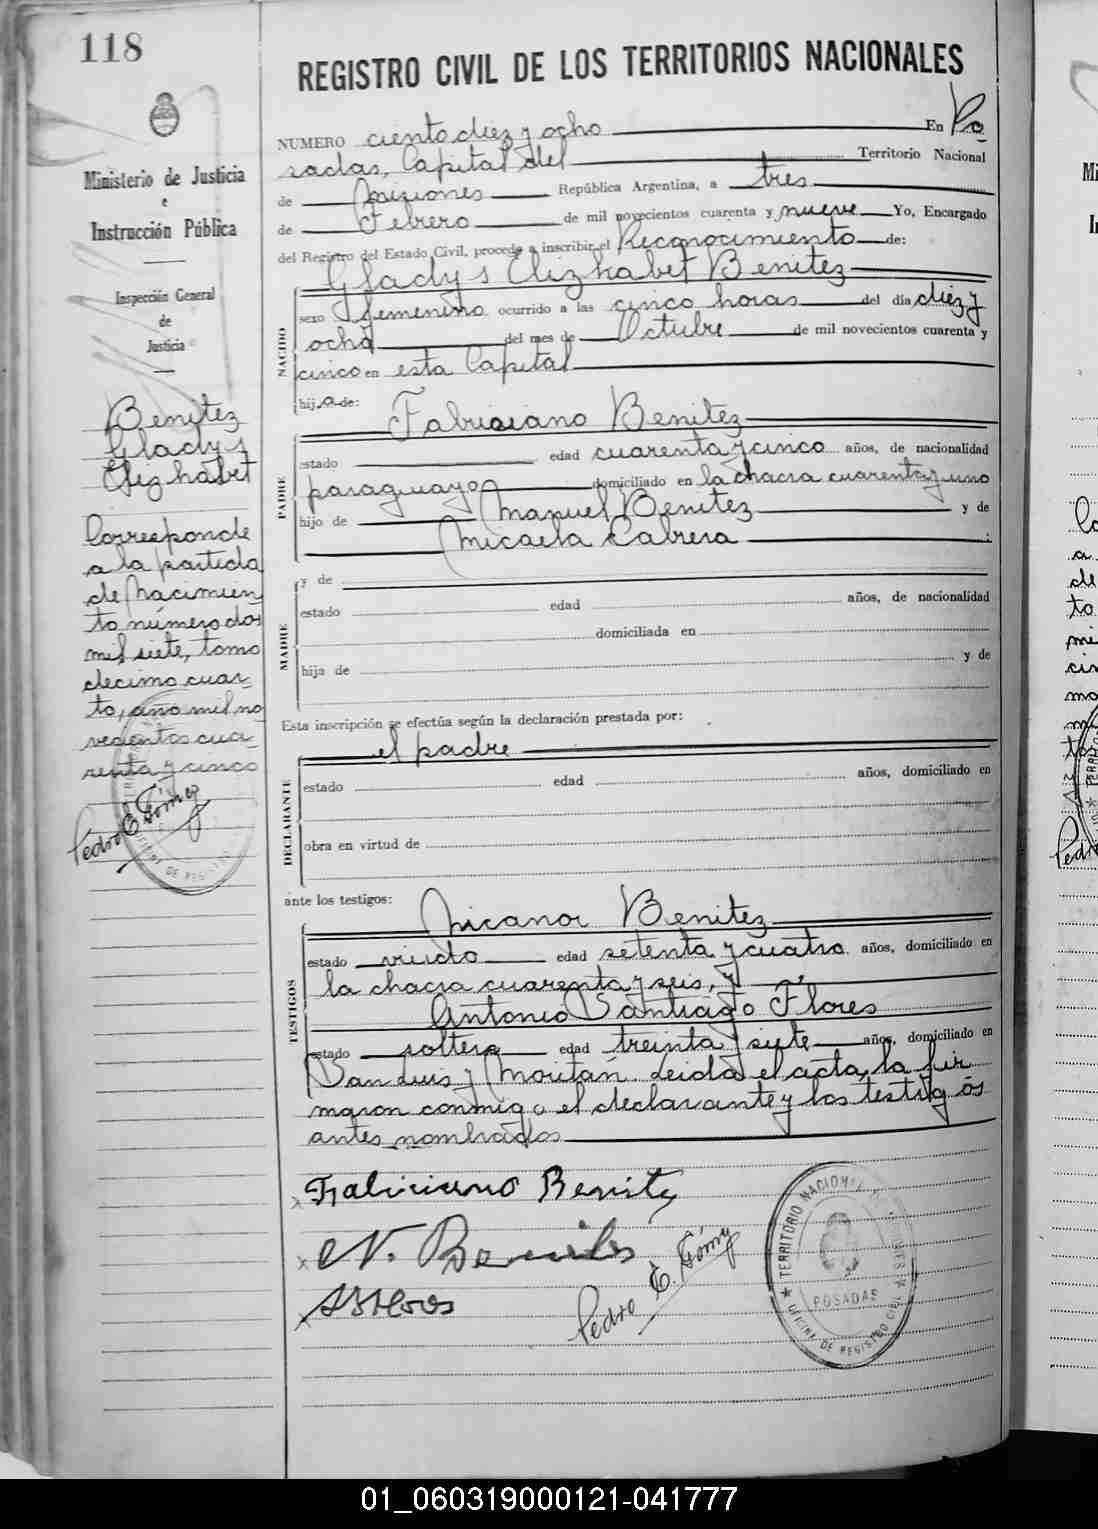 118
REGISTRO CIVIL DE LOS TERRITORIOS NACIONALES
Ministerio de Justicia
e
Instrucción Pública
Inspección General
de
Justicia
Benitez
Gladys
Elizhabet
Corresponde
a la partida
de Nacimien
to número dos
mil siete, tomo
decimo cuar-
to, año mil no
vecientos cua-
renta y cinco
Pedro E. Gómez
NUMERO ciento diez y ocho En Po
sadas, Capital del Territorio Nacional
de Misiones República Argentina, a tres
de Febrero de mil novecientos cuarenta y nueve Yo, Encargado
del Registro del Estado Civil, procedo a inscribir el Reconocimiento de:
Gladys Elizhabet Benitez
NACIDO
sexo femenino ocurrido a las cinco horas del día diez y
ocho del mes de Octubre de mil novecientos cuarenta y
cinco en esta Capital
hija de:
Fabriciano Benitez
PADRE
estado edad cuarenta y cinco años, de nacionalidad
paraguayo domiciliado en la chacra cuarenta y uno
hijo de Manuel Benitez y de
Micaela Cabrera
y de
MADRE
estado edad años, de nacionalidad
domiciliada en
hija de y de
Esta inscripción se efectúa según la declaración prestada por:
el padre
DECLARANTE
estado edad años, domiciliado en
obra en virtud de
ante los testigos:
Nicanor Benitez
TESTIGOS
estado viudo edad setenta y cuatro años, domiciliado en
la chacra cuarenta y seis, y
Antonio Santiago Flores
estado soltero edad treinta y siete años, domiciliado en
San Luis y Moritán. Leida el acta, la fir
maron conmigo el declarante y los testigos
antes nombrados
Fabriciano Benitez
N. Benitez
Pedro E. Gómez
TERRITORIO NACIONAL DE MISIONES
POSADAS
OFICINA DE REGISTRO CIVIL
01_060319000121-041777